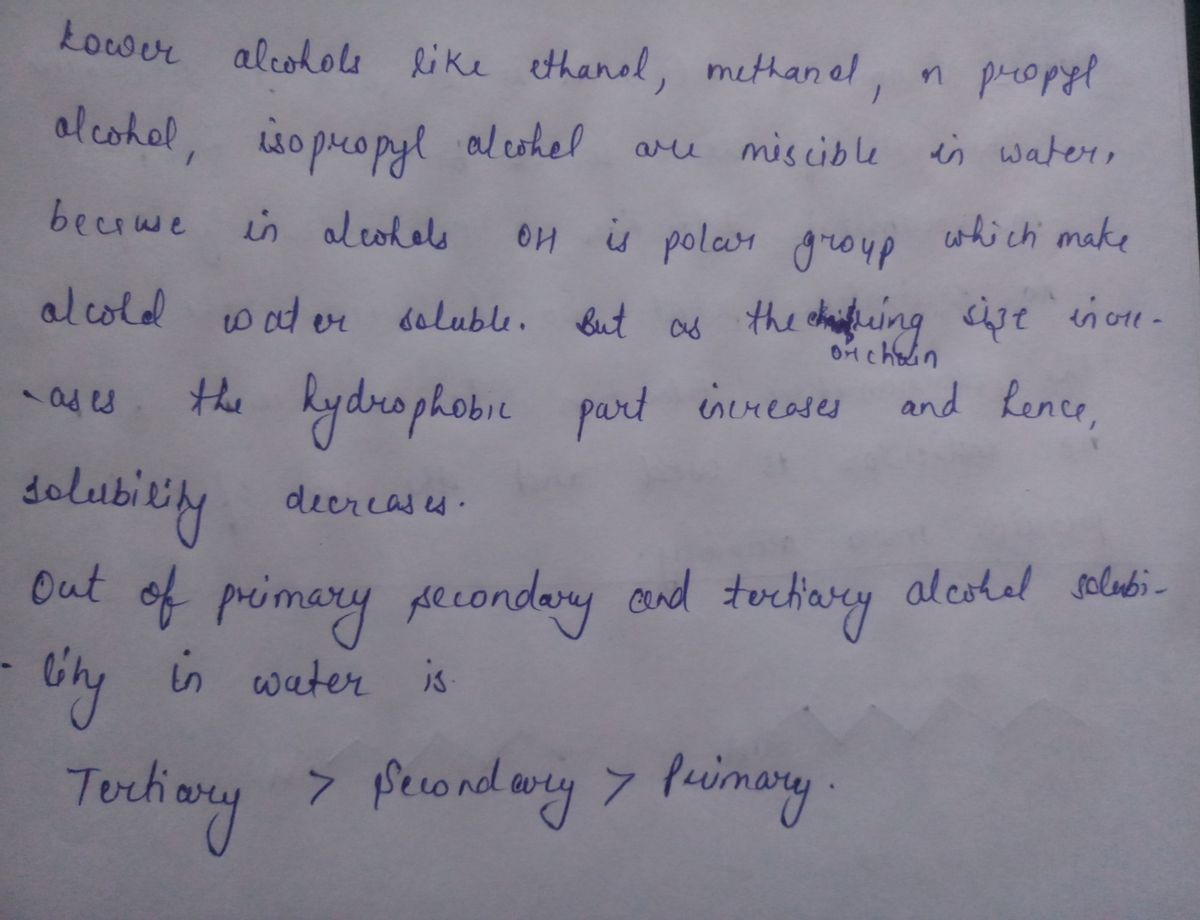 Lower alcohols like ethanol, methanol, n propyl
alcohol, isopropyl alcohol are miscible in water,
because in alcohols OH is polar group which make
alcohol water soluble. But as the ring size incre-
or chain
-ases the hydrophobic part increases and hence,
solubility decreases.
Out of primary secondary and tertiary alcohol solubi-
-lity in water is
Tertiary > Secondary > Primary.